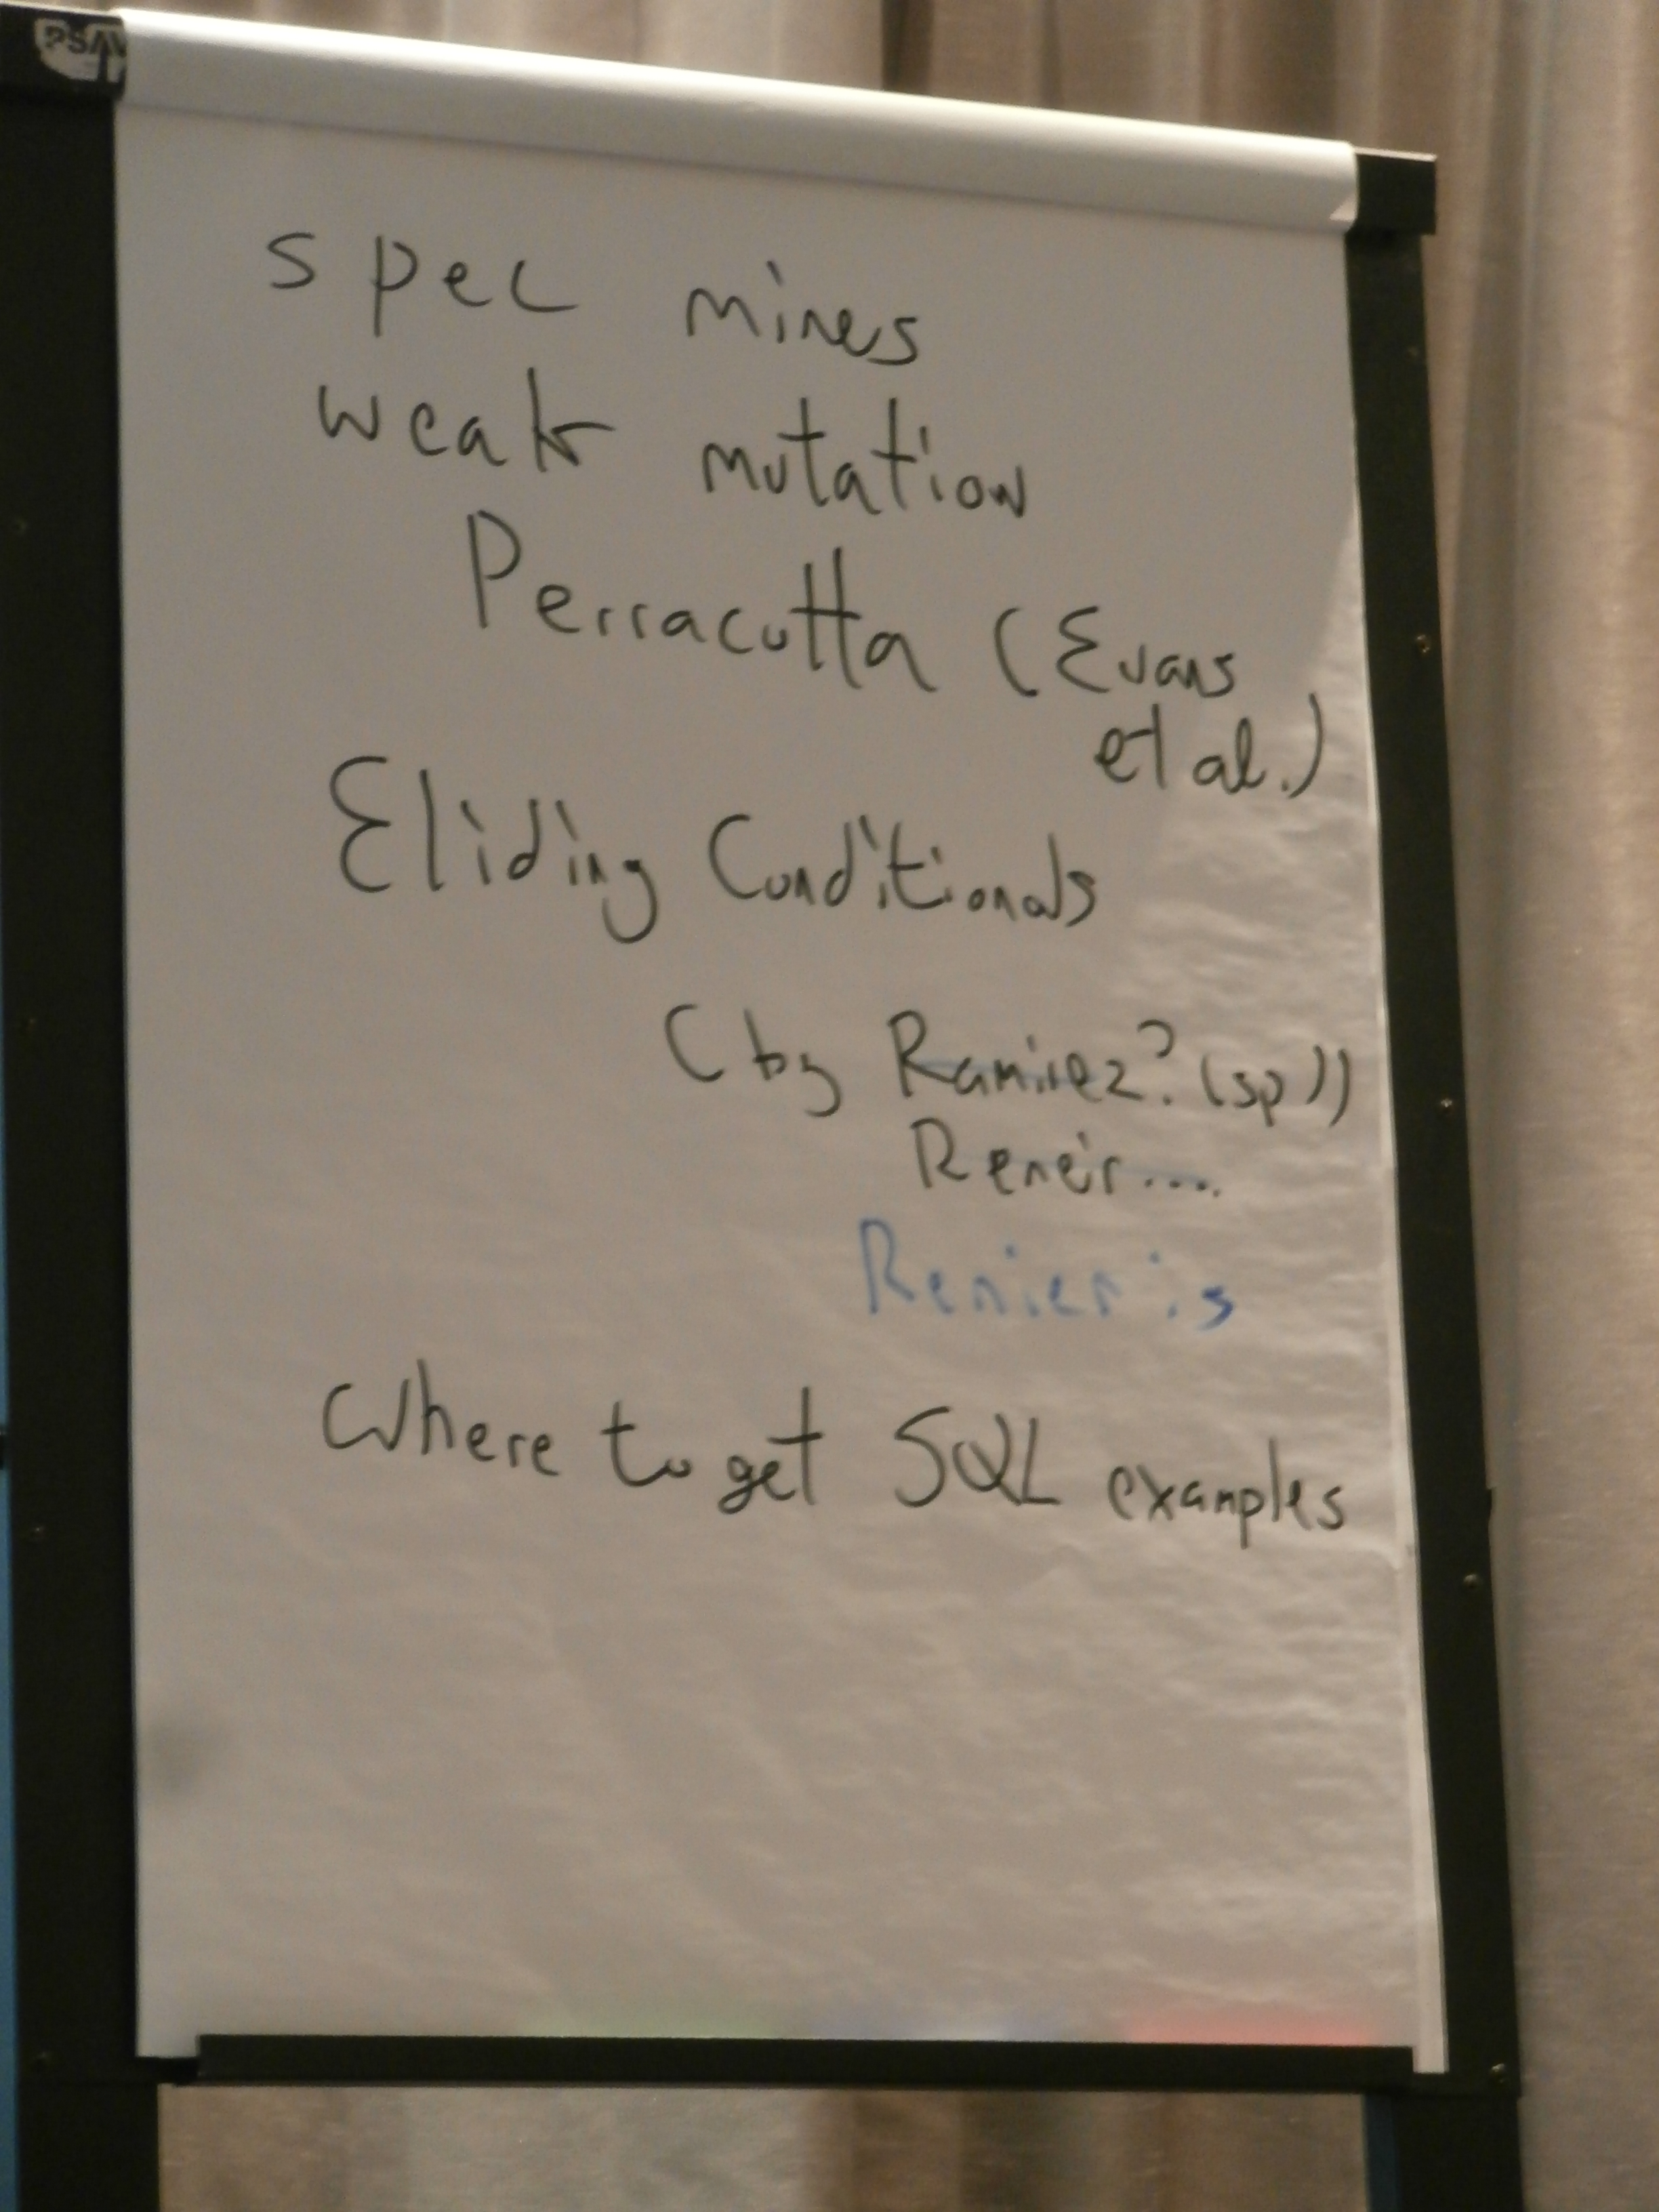 PSAV
spec miners
weak mutation
Perracotta (Evans
et al.)
Eliding Conditionals
(by Ramirez? (sp))
Reneir....
Renieris
Where to get SQL examples